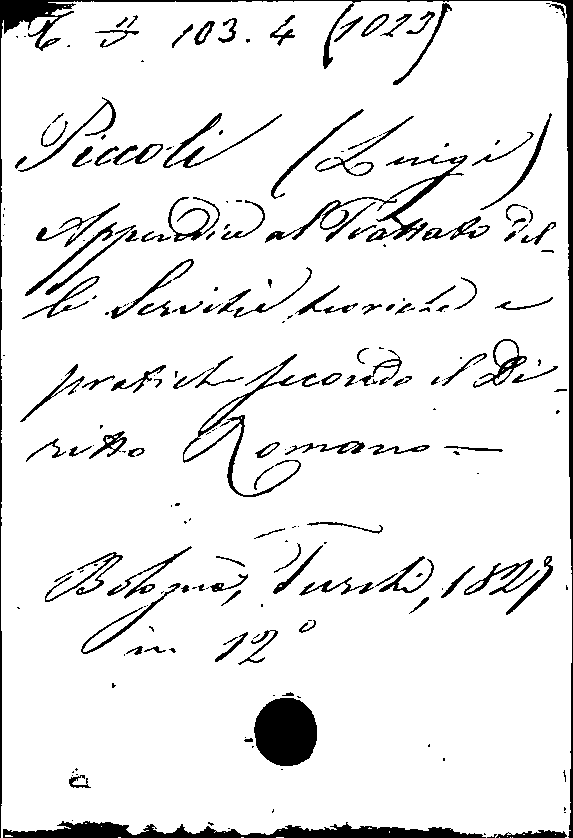 103. 4 (1023)
Piccoli (Luigi)
Appendice al Trattato del-
le Servitù teoriche e
pratiche secondo il Di-
ritto Romano —
Bologna, Turchi, 1827
in 12°